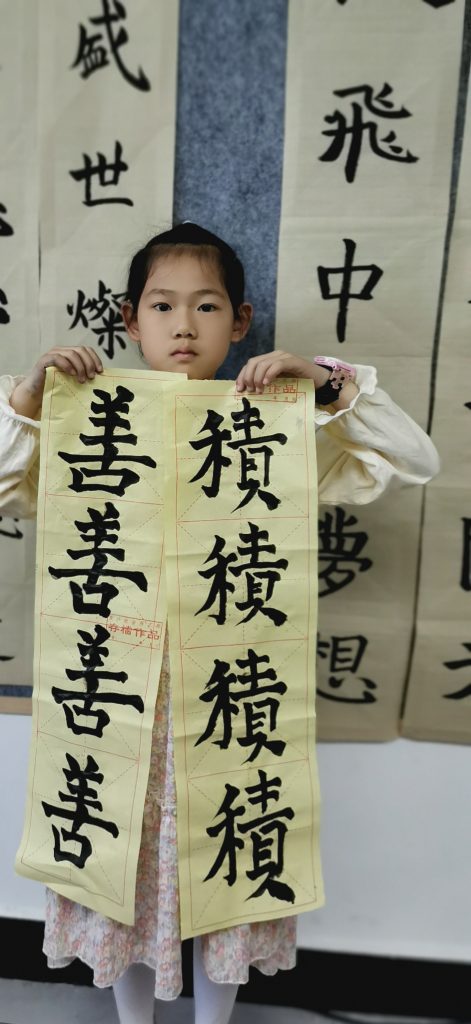 積積積積
善善善善
作品
存檔作品
飛中
夢想
盛世燦